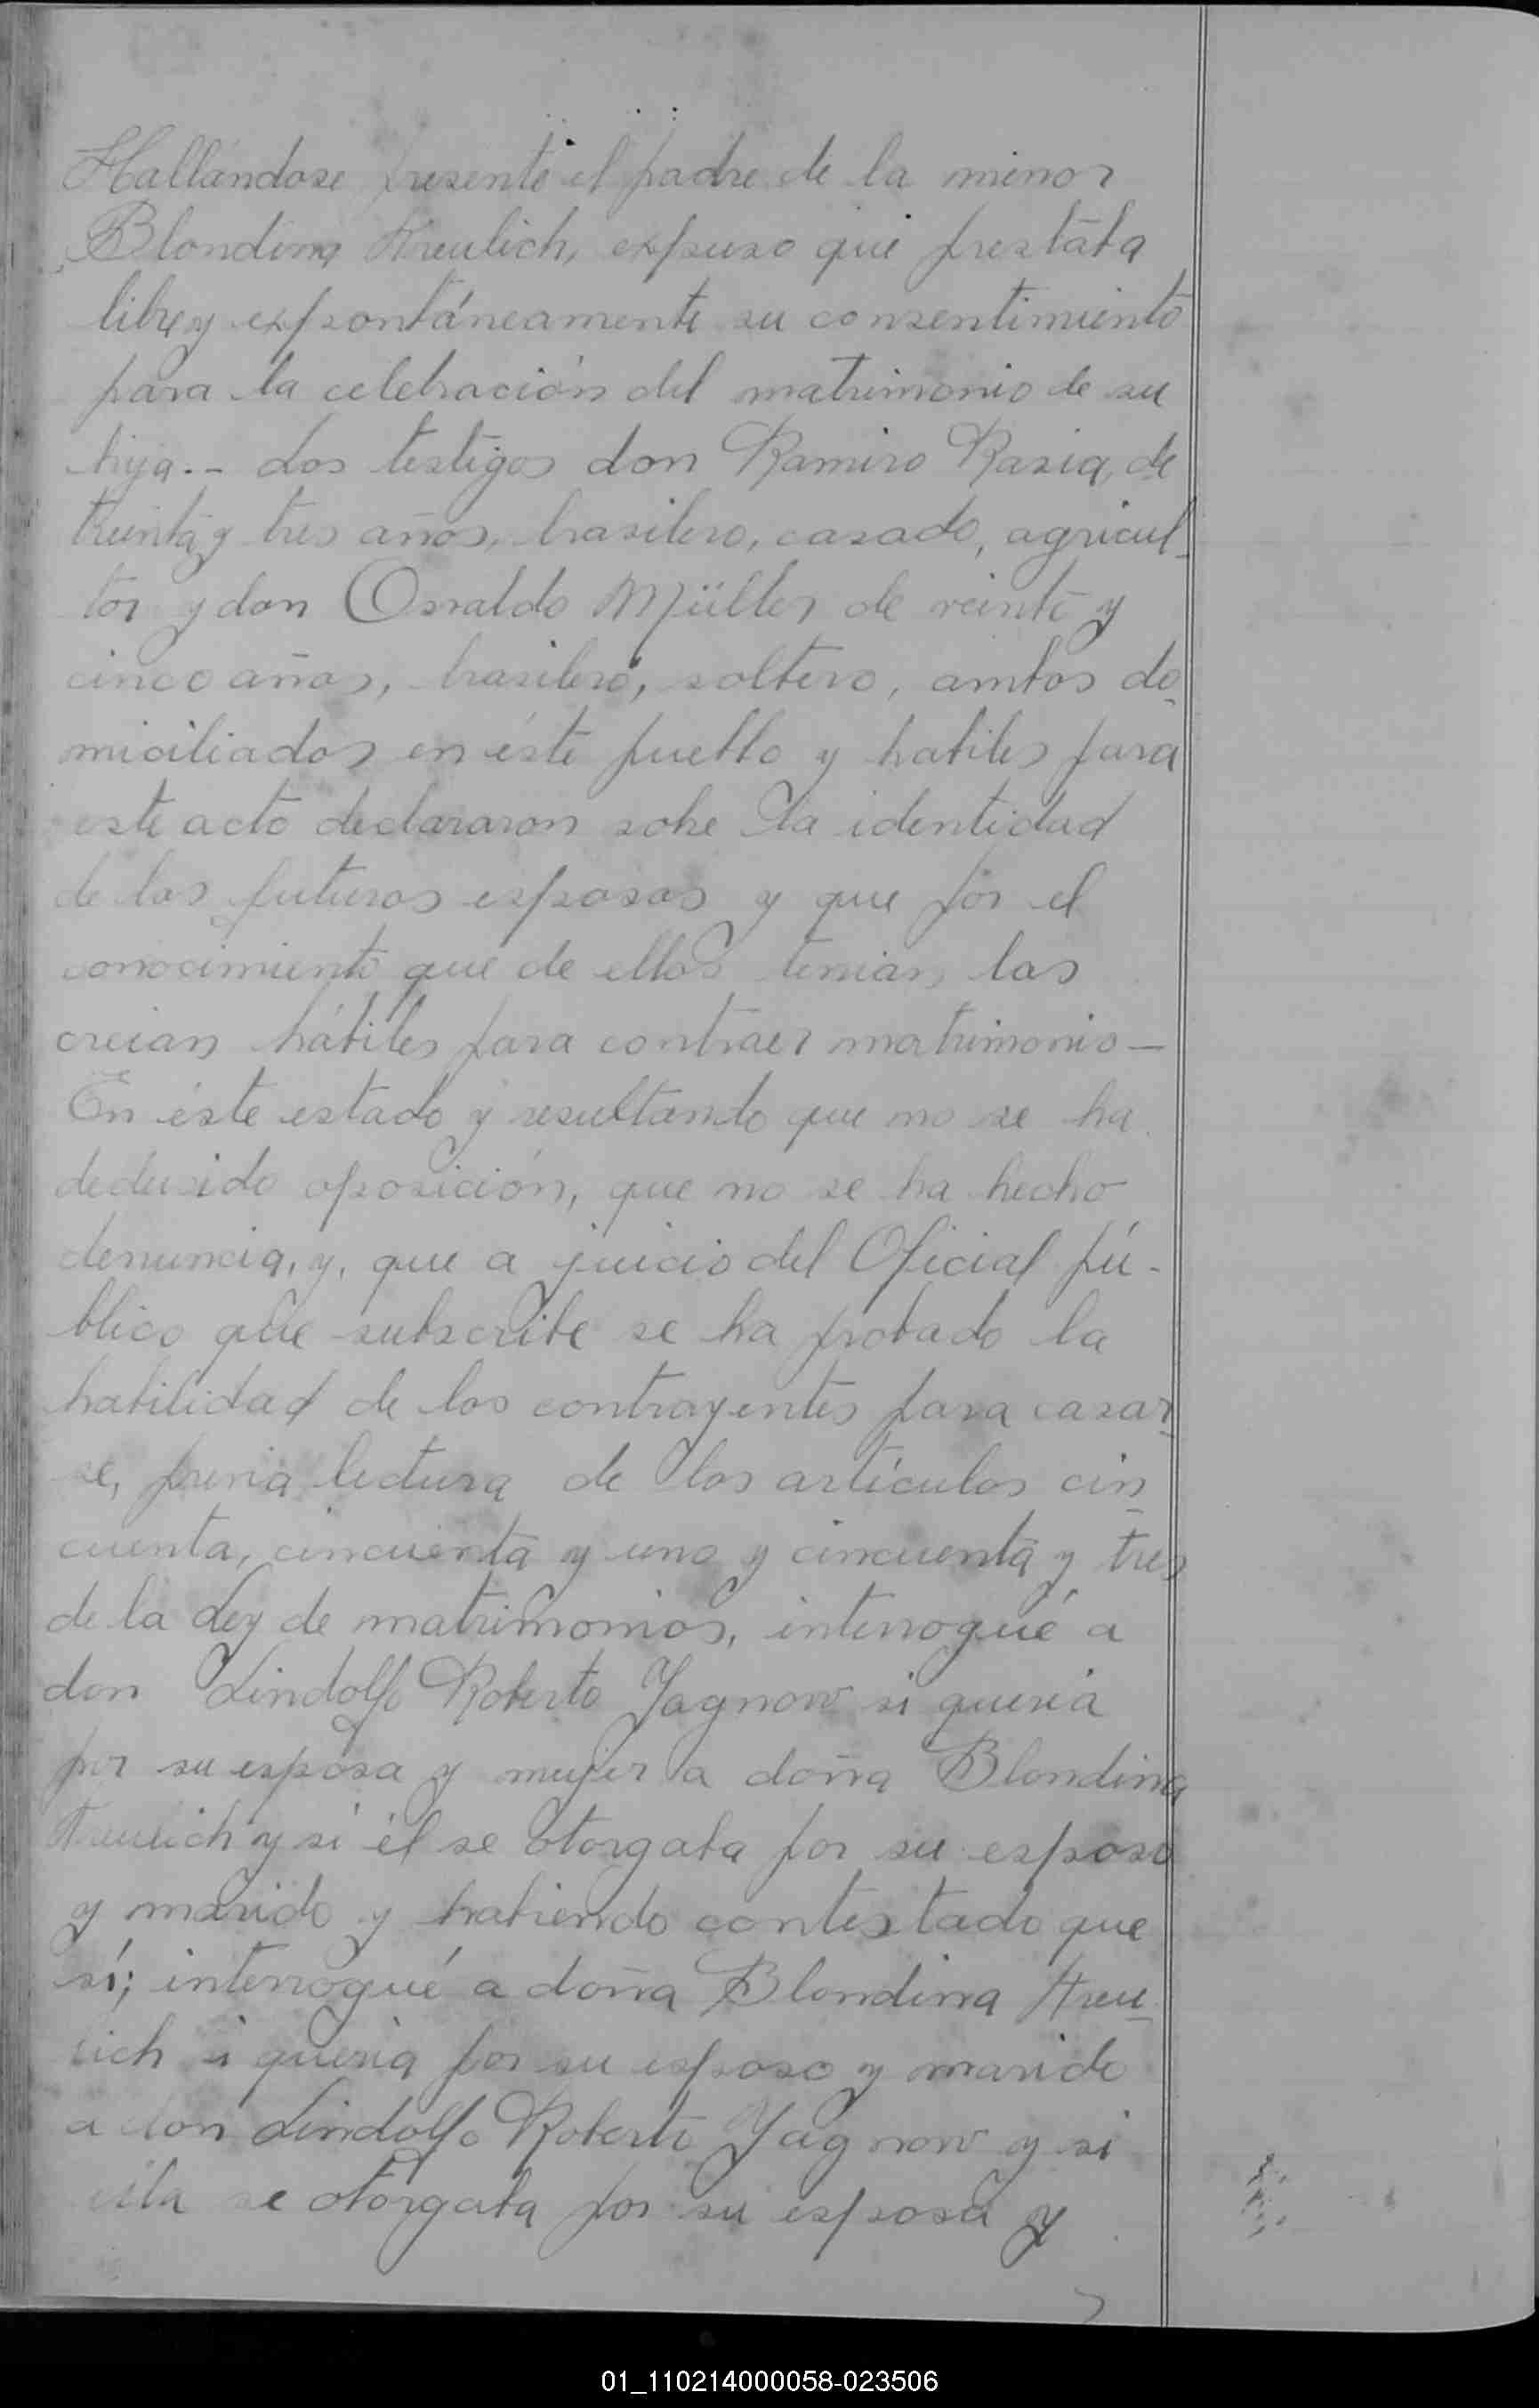 Hallándose presente el padre de la menor
Blondina Kreulich, expuso que prestaba
libre y expontáneamente su consentimiento
para la celebración del matrimonio de su
hija.- Los testigos don Ramiro Rasia, de
treinta y tres años, brasilero, casado, agricul_
tor y don Osvaldo Müller de veinte y
cinco años, brasilero, soltero, ambos do_
miciliados en éste pueblo y habiles para
este acto declararon sobre la identidad
de los futuros esposos y que por el
conocimiento que de ellos tenian los
creian hábiles para contraer matrimonio —
En éste estado y resultando que no se ha
dedusido oposición, que no se ha hecho
denuncia, y, que a juicio del Oficial pú-
blico que subscribe se ha probado la
habilidad de los contrayentes para casar_
se, previa lectura de los artículos cin_
cuenta, cincuenta y uno y cincuenta y tres
de la Ley de matrimonios, interrogué a
don Lindolfo Roberto Jagnow si queria
por su esposa y mujer a doña Blondina
Kreulich y si él se otorgaba por su esposo
y marido y habiendo contestado que
sí; interrogué a doña Blondina Kreu_
lich si queria por su esposo y marido
a don Lindolfo Roberto Jagnow y si
ella se otorgaba por su esposa y
01_110214000058-023506